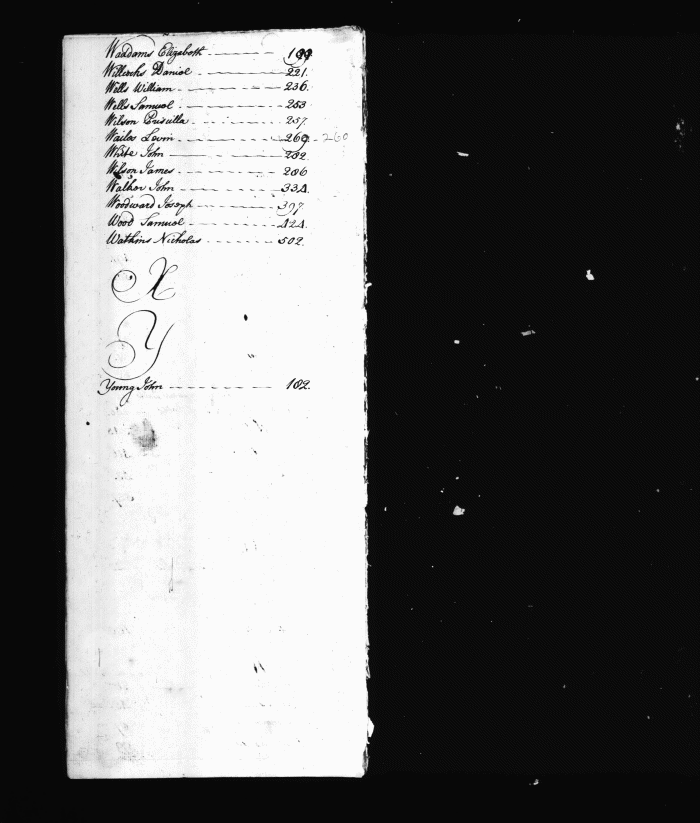 Waddams Elizabeth
Daniel 221.
Wells William 236.
Wells Samuel 253
Wilson Priscilla 257.
Wailes Levin 269 - 260
White John 282
Wilson James 286
Walker John 334.
Woodward Joseph 397
Wood Samuel 424.
Watkins Nicholas 502.
X
Y
Young John 182.